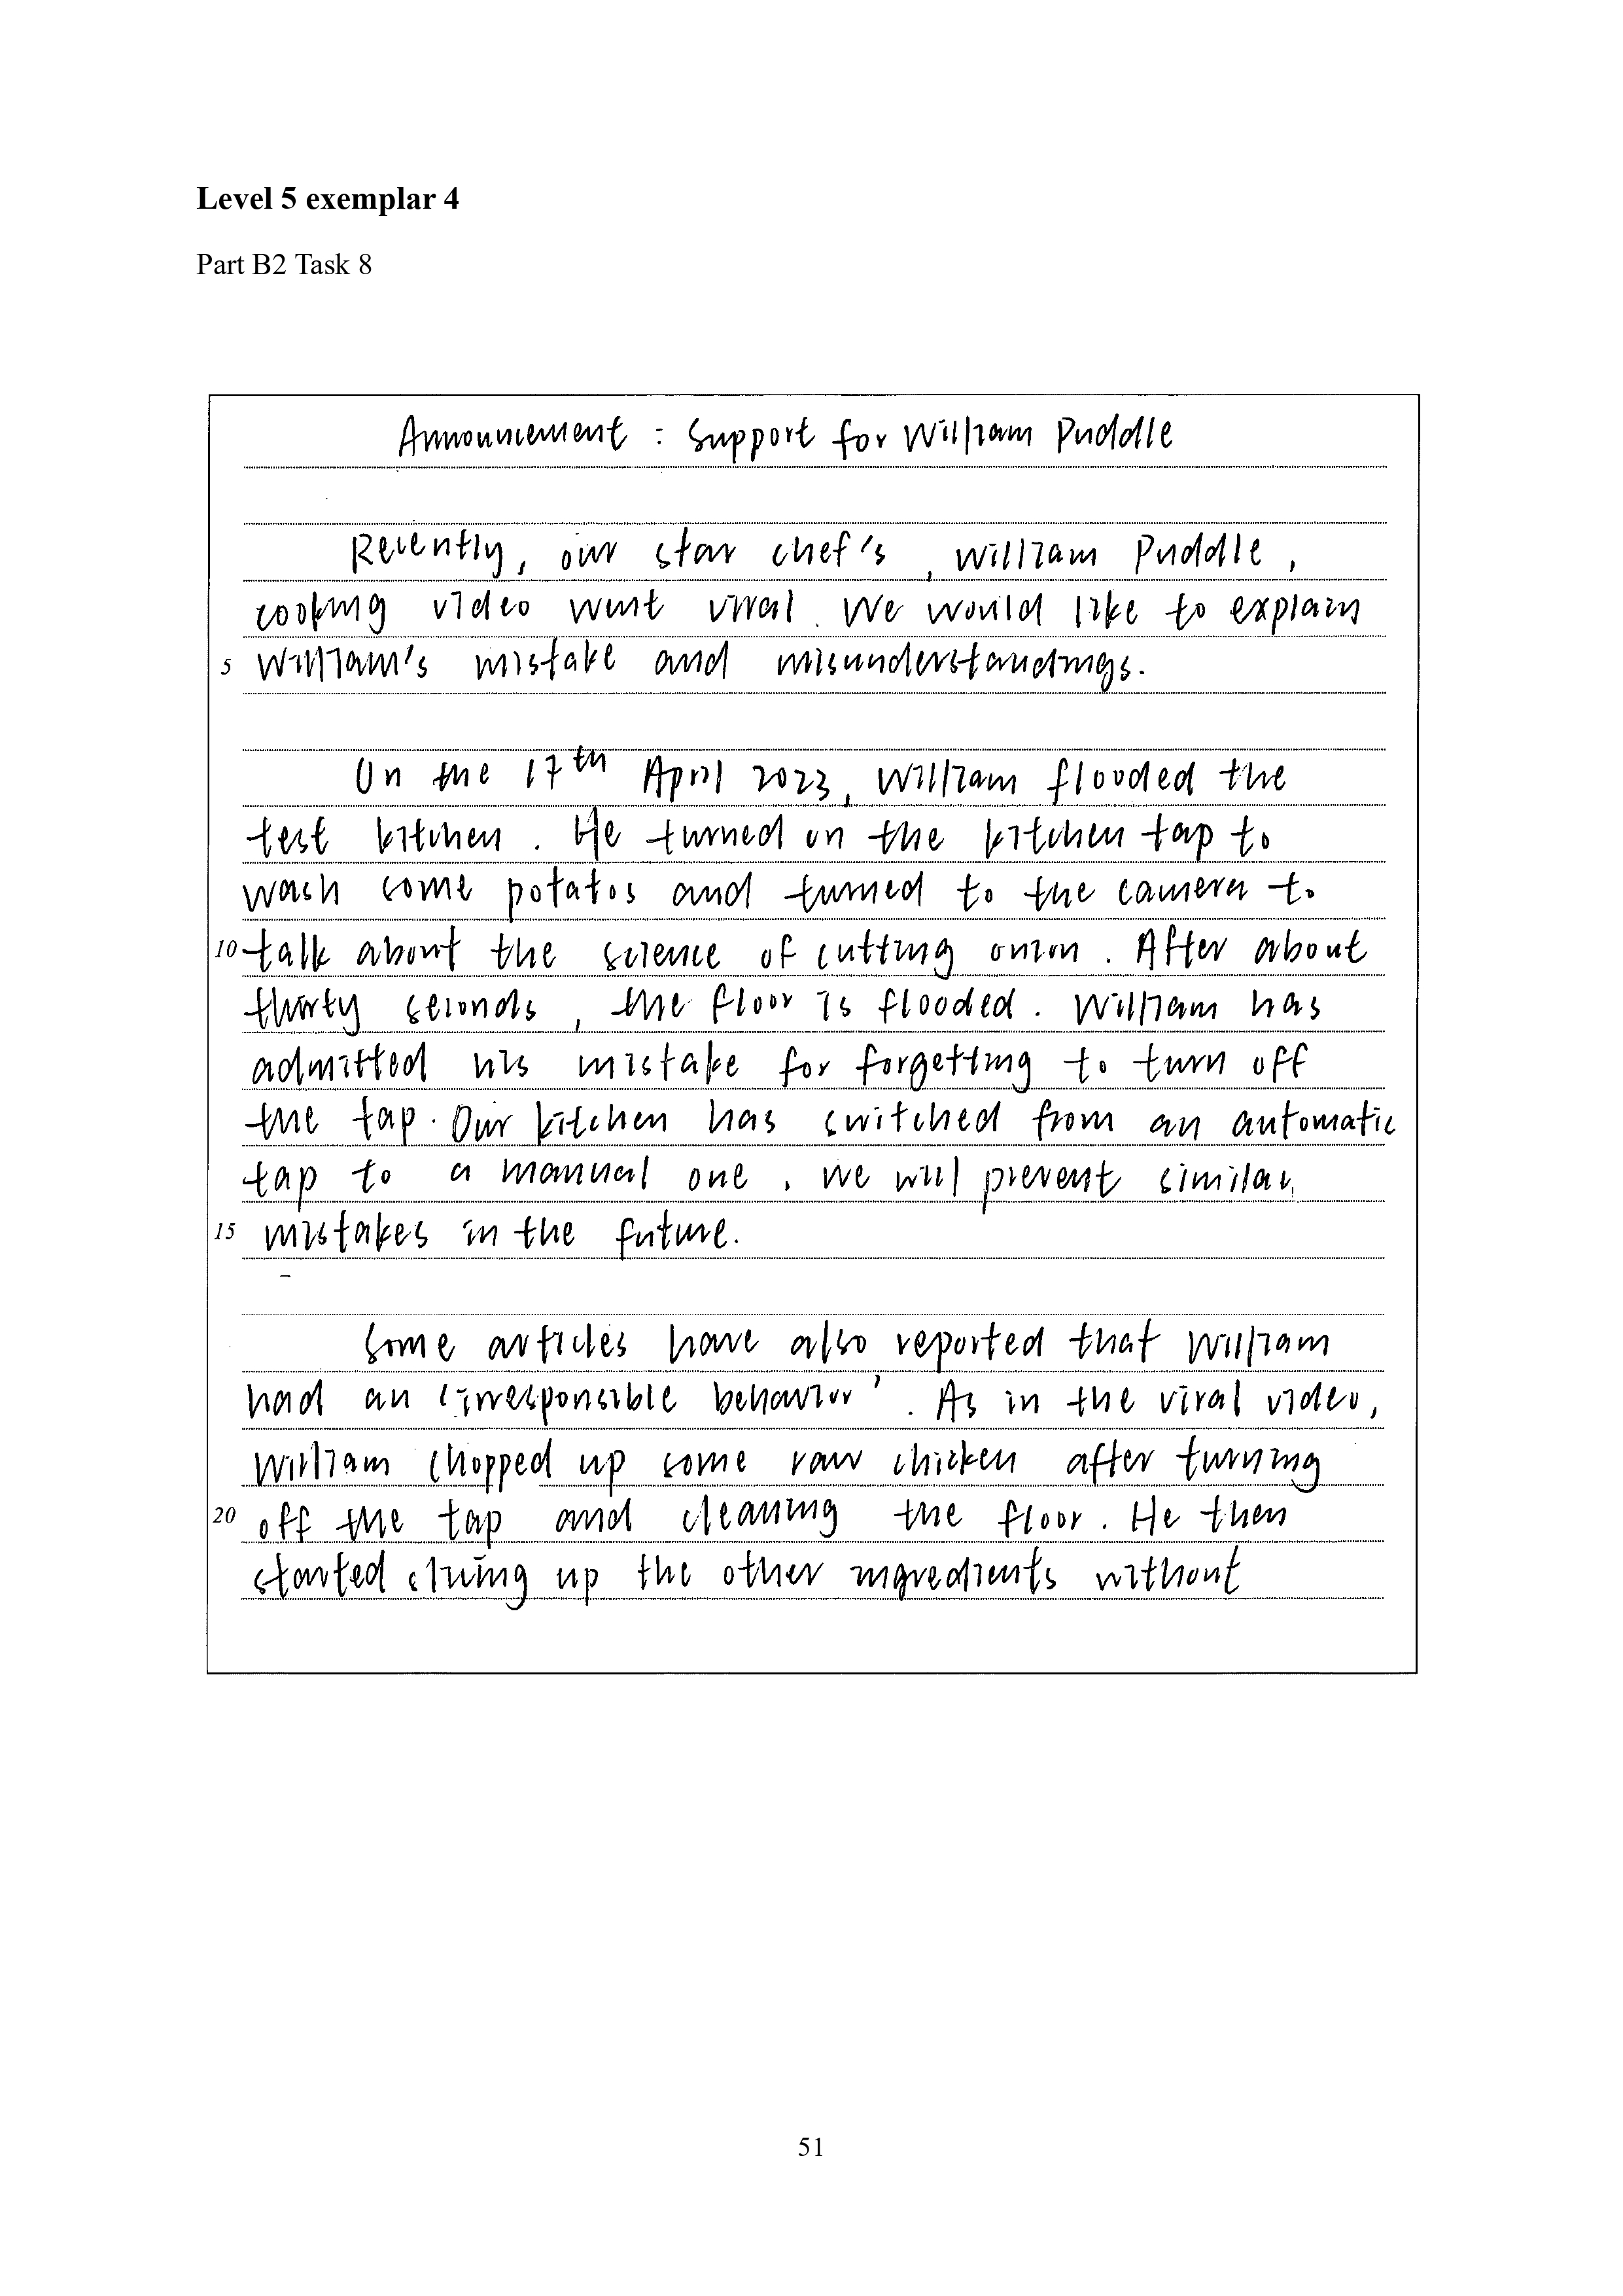 Level 5 exemplar 4
Part B2 Task 8
Announcement : Support for William Puddle
Recently, our star chef's , William Puddle ,
cooking video went viral . We would like to explain
5 William's mistake and misunderstandings.
On the 17th April 2023, William flooded the
test kitchen . He turned on the kitchen tap to
wash some potatos and turned to the camera to
10 talk about the science of cutting onion . After about
thirty seconds , the floor is flooded . William has
admitted his mistake for forgetting to turn off
the tap . Our kitchen has switched from an automatic
tap to a manual one . We will prevent similar
15 mistakes in the future.
Some articles have also reported that William
had an 'irresponsible behavior' . As in the viral video,
William chopped up some raw chicken after turning
20 off the tap and cleaning the floor . He then
started slicing up the other ingredients without
51